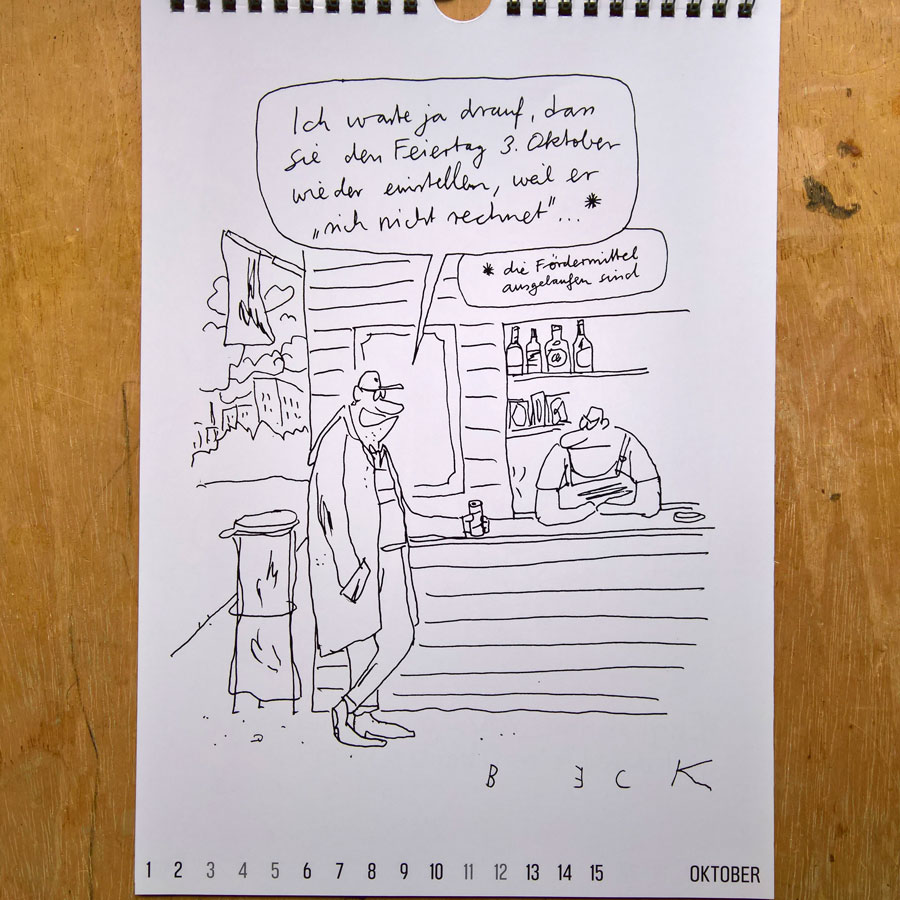 Ich warte ja drauf, dass
sie den Feiertag 3. Oktober
wieder einstellen, weil er
„sich nicht rechnet"...*
* die Fördermittel
ausgelaufen sind
B E C K
1 2 3 4 5 6 7 8 9 10 11 12 13 14 15 OKTOBER